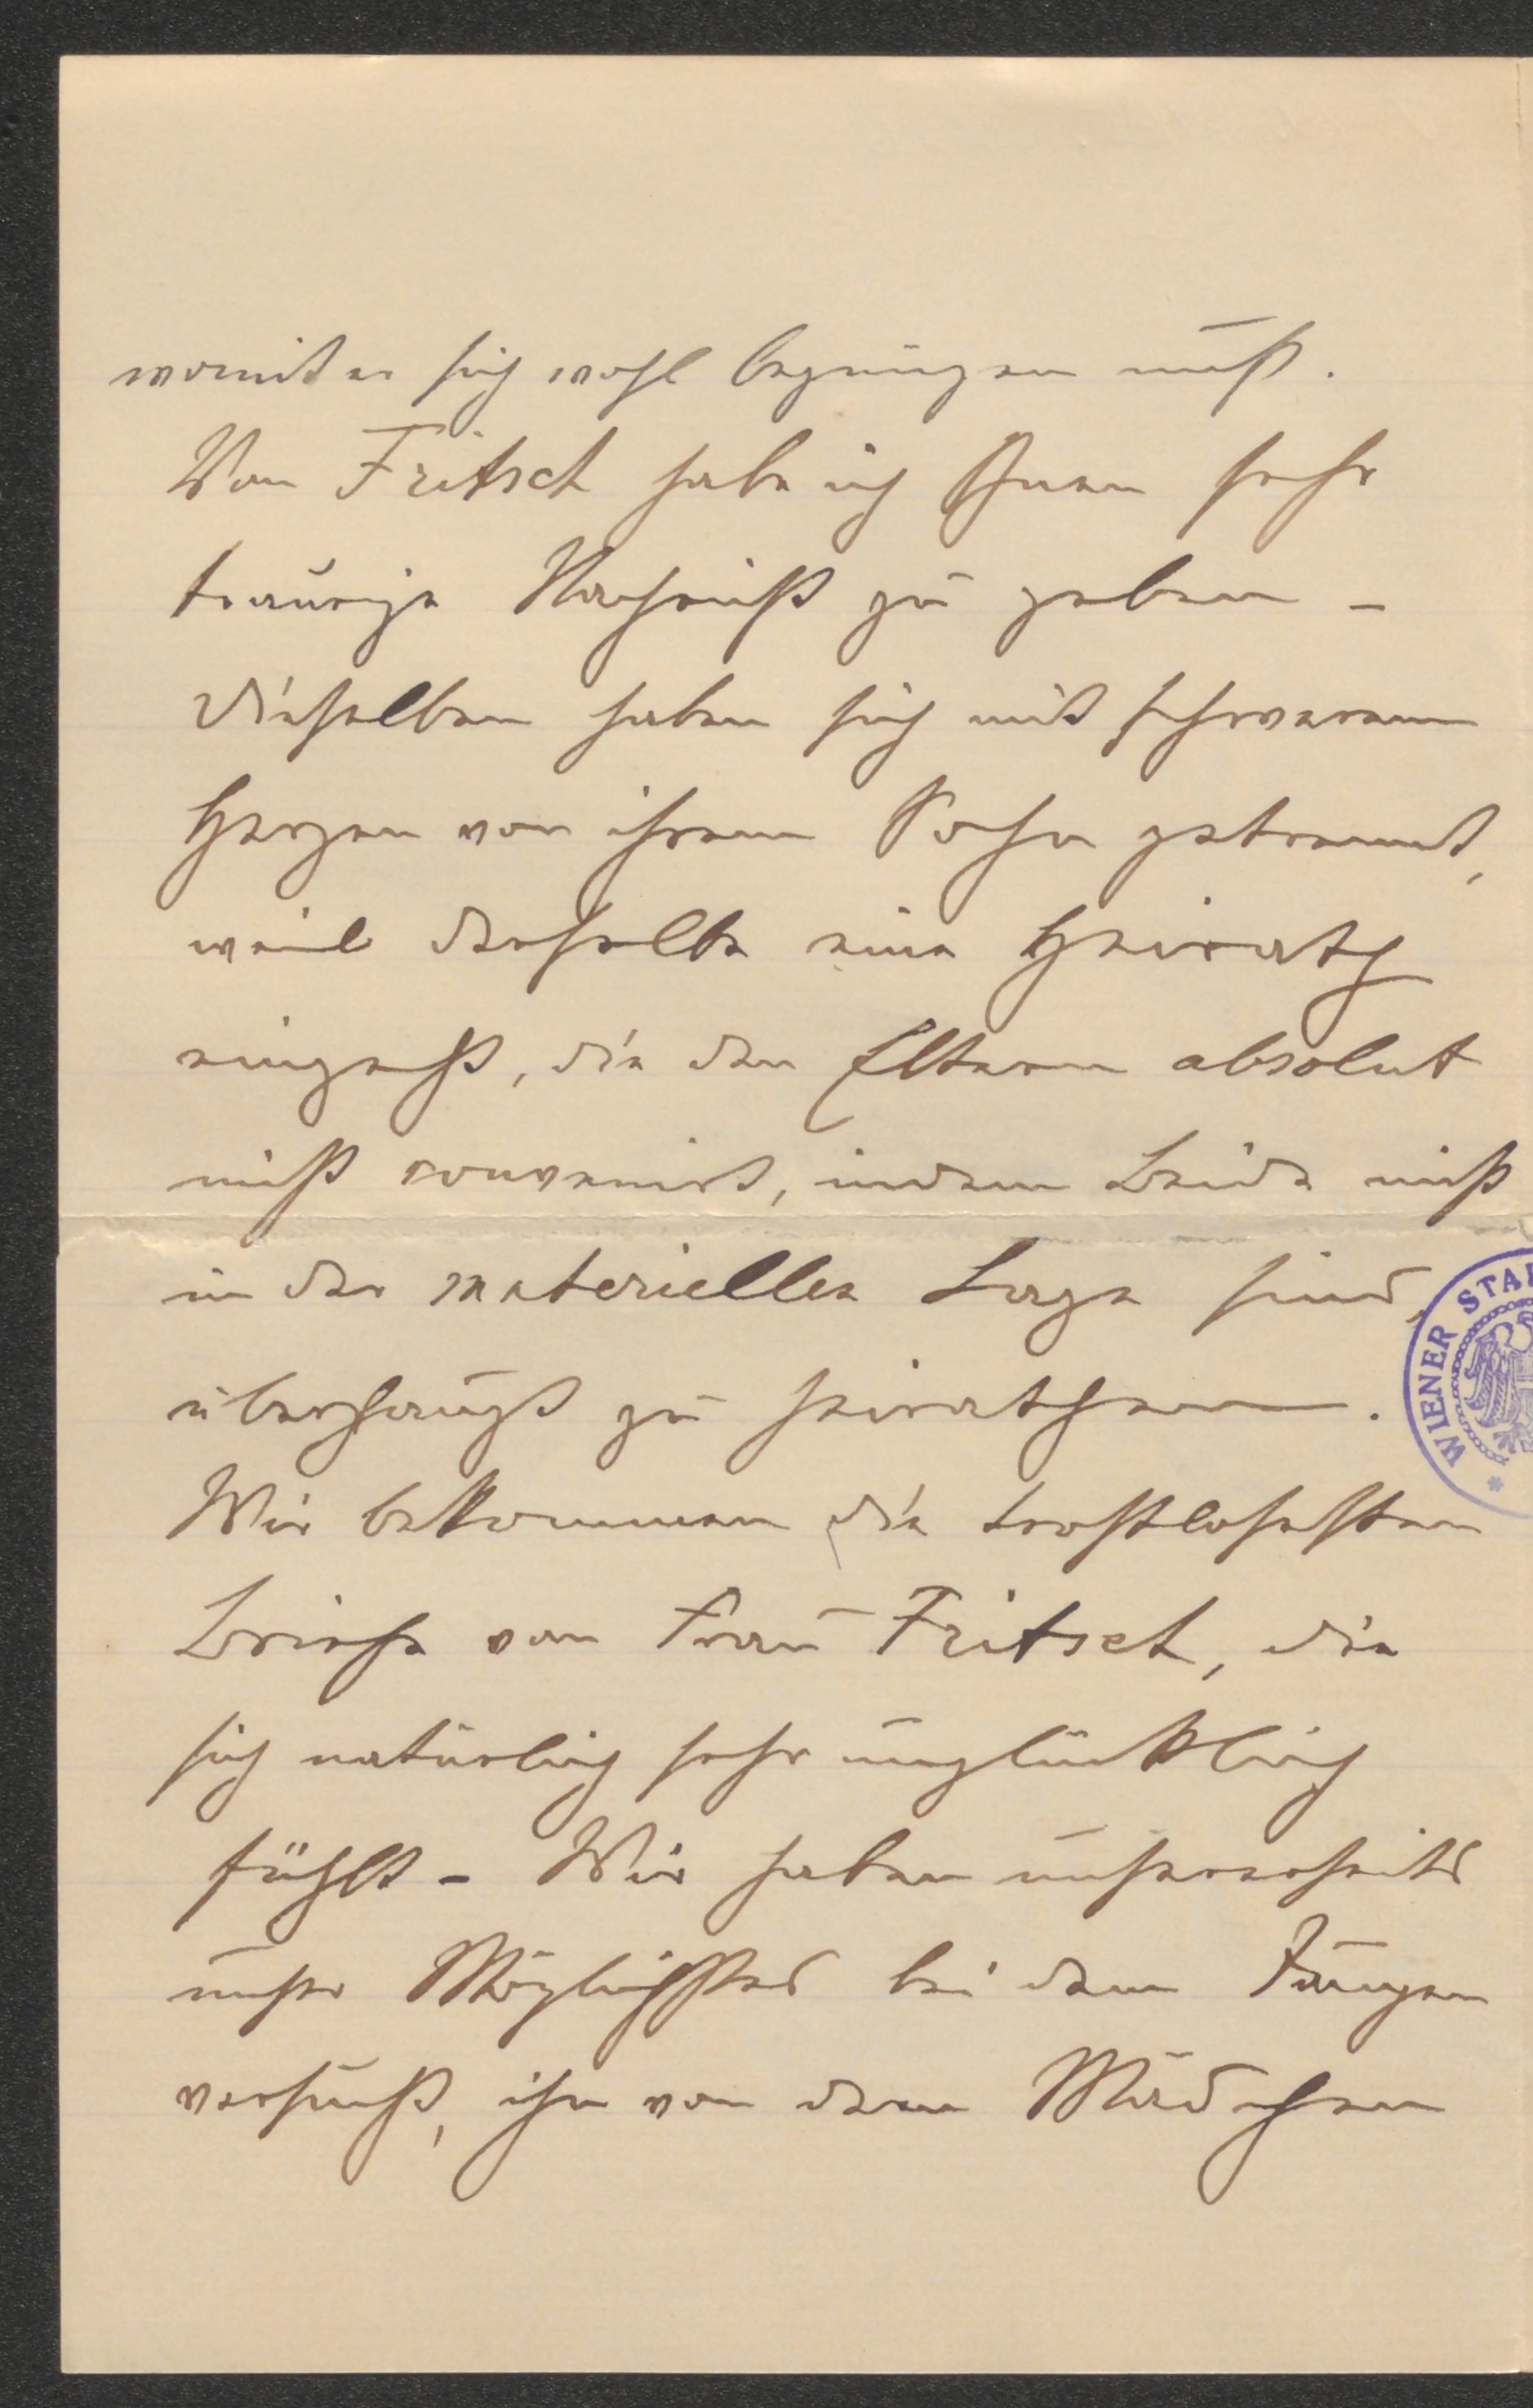 womit er sich wohl begnügen muß.
Von Fritsch habe ich Ihnen sehr
traurige Nachricht zu geben –
Dieselben haben sich mit schwerem
Herzen von ihrem Sohn getrennt,
weil derselbe eine Heirath
eingeht, die den Eltern absolut
nicht convenirt, indem Beide nicht
in der materiellen Lage sind,
überhaupt zu heirathen.
Wir bekommen die trostlosesten
Briefe von Frau Fritsch, die
sich natürlich sehr unglücklich
fühlt – Wir haben unsererseits
unser Möglichstes bei dem Jungen
versucht, ihn von dem Mädchen
WIENER STA